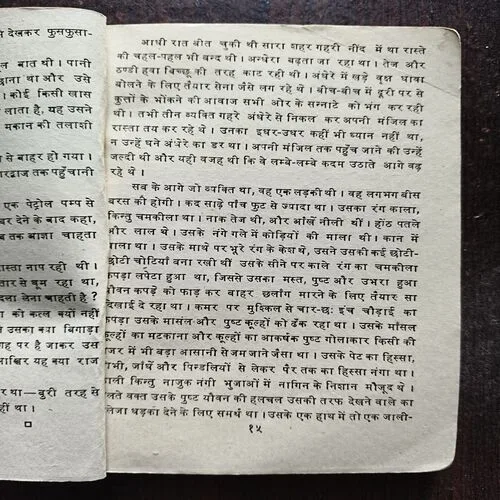 से देखकर फुसफुसा-
बात थी। पानी
था और उसे
कोई किसी खास
लाता है, यह उसने
मकान की तलाशी
से बाहर हो गया।
तक पहुँचानी
एक पेट्रोल पम्प से
देने के बाद कहा,
तक चाहता
रास्ता नाप रही थी।
से घूम रहा था,
लेना चाहती है ?
को कत्ल क्यों नहीं
उसका क्या बिगाड़ा
पर है जाकर उस
आखिर यह क्या राज
था—बुरी तरह से
था।
आधी रात बीत चुकी थी सारा शहर गहरी नींद में था रास्ते
की चहल-पहल भी बन्द थी। अन्धेरा बढ़ता जा रहा था। तेज और
ठण्डी हवा बिच्छू की तरह काट रही थी। अंधेरे में खड़े वृक्ष धावा
बोलने के लिए तैयार सेना जैसे लग रहे थे। बीच-बीच में दूरी पर से
कुत्तों के भौंकने की आवाज सभी ओर के सन्नाटे को भंग कर रही
थी। तभी तीन व्यक्ति गहरे अंधेरे से निकल कर अपनी मंजिल का
रास्ता तय कर रहे थे। उनका इधर-उधर कहीं भी ध्यान नहीं था,
न उन्हें घने अंधेरे का डर था। अपनी मंजिल तक पहुंच जाने की उन्हें
जल्दी थी और यही वजह थी कि वे लम्बे-लम्बे कदम उठाते आगे बढ़
रहे थे।
सब के आगे जो व्यक्ति था, वह एक लड़की थी। वह लगभग बीस
बरस की होगी। कद साढ़े पांच फुट से ज्यादा था। उसका रंग काला,
किन्तु चमकीला था। नाक तेज थी, और आंखें नीली थीं। होंठ पतले
और लाल थे। उसके नंगे गले में कोड़ियों की माला थी। कान में
बाला था। उसके माथे पर भूरे रंग के केश थे, उसने उनकी कई छोटी-
छोटी चोटियाँ बना रखी थीं उसके सीने पर काले रंग का चमकीला
कपड़ा लपेटा हुआ था, जिससे उसका मस्त, पुष्ट और उभरा हुआ
यौवन कपड़े को फाड़ कर बाहर छलांग मारने के लिए तैयार सा
दिखाई दे रहा था। कमर पर मुश्किल से चार-छः इंच चौड़ाई का
कपड़ा उसके मांसल और पुष्ट कूल्हों को ढँक रहा था। उसके मांसल
कूल्हों का मटकाना और कूल्हों का आकर्षक पुष्ट गोलाकार किसी की
नजर में भी बड़ा आसानी से जम जाने जैसा था। उसके पेट का हिस्सा,
नाभी, जांघें और पिण्डलियों से लेकर पैर तक का हिस्सा नंगा था।
काली किन्तु नाजुक नंगी भुजाओं में नागिन के निशान मौजूद थे।
चलते वक्त उसके पुष्ट यौवन की हलचल उसकी तरफ देखने वाले का
कलेजा धड़का देने के लिए समर्थ था। उसके एक हाथ में तो एक जाली-
१५